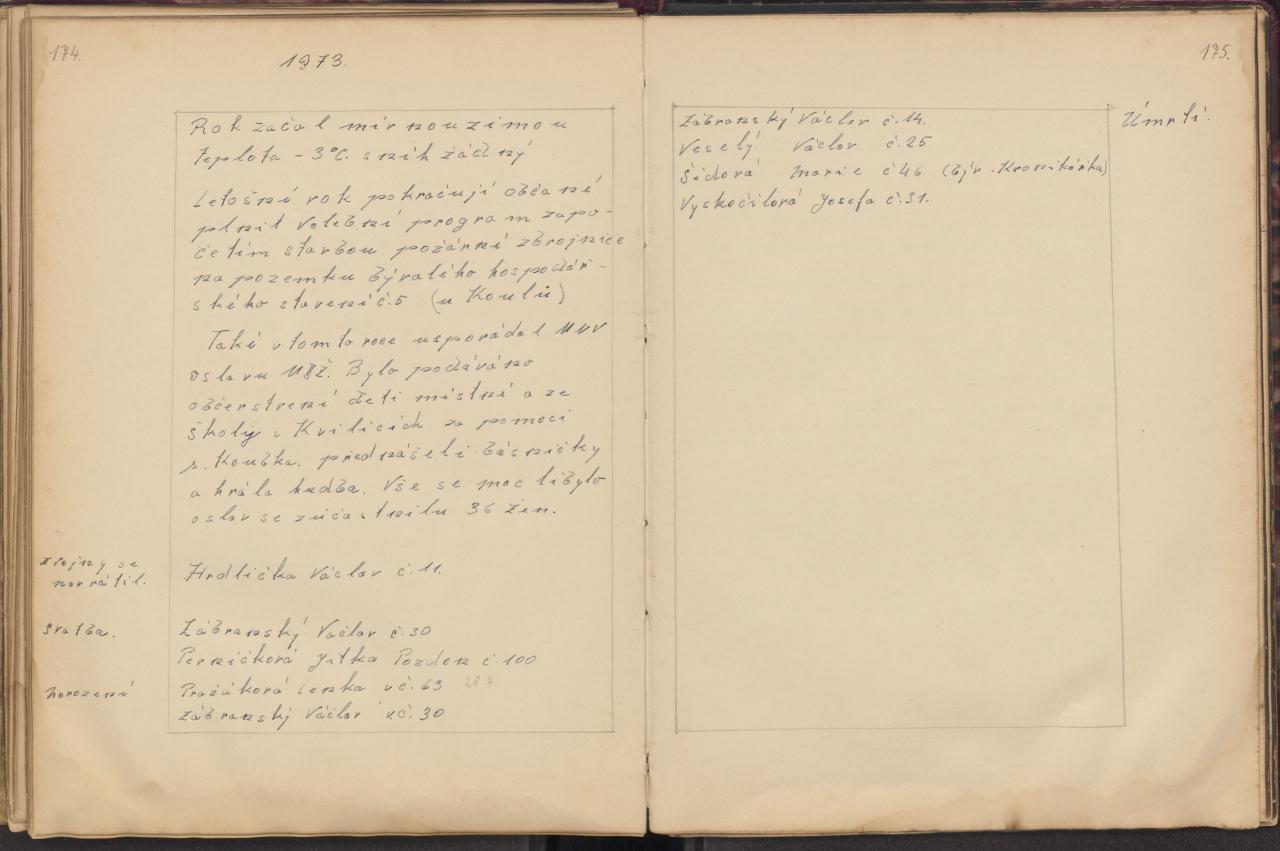 174.
1973.
Rok začal mírnou zimou
teplota -3°C. sníh žádný
Letošní rok pokračují občané
plnit volební program zapo-
četím stavbou požární zbrojnice
na pozemku bývalého hospodář-
ského stavení č.5 (u Koulů)
Také v tomto roce uspořádal MNV
oslavu MDŽ. Bylo podáváno
občerstvení děti místní a ze
školy v Kvílicích za pomoci
s. Koubka. přednášeli básničky
a hrála hudba. Vše se moc líbylo
oslav se zúčastnilu 36 žen.
Z vojny se
navrátil.
Hrdlička Václav č.11.
Svatba.
Zábranský Václav č.30
Perničková Jitka Pozden č.100
Narození
Pražáková Lenka v č.63 28.7
Zábranský Václav v.č.30
175.
Úmrtí.
Zábranský Václav č.14.
Veselý Václav č.25
Šídová Marie č46 (býv. Kronikářka)
Vyskočilová Josefa č.31.